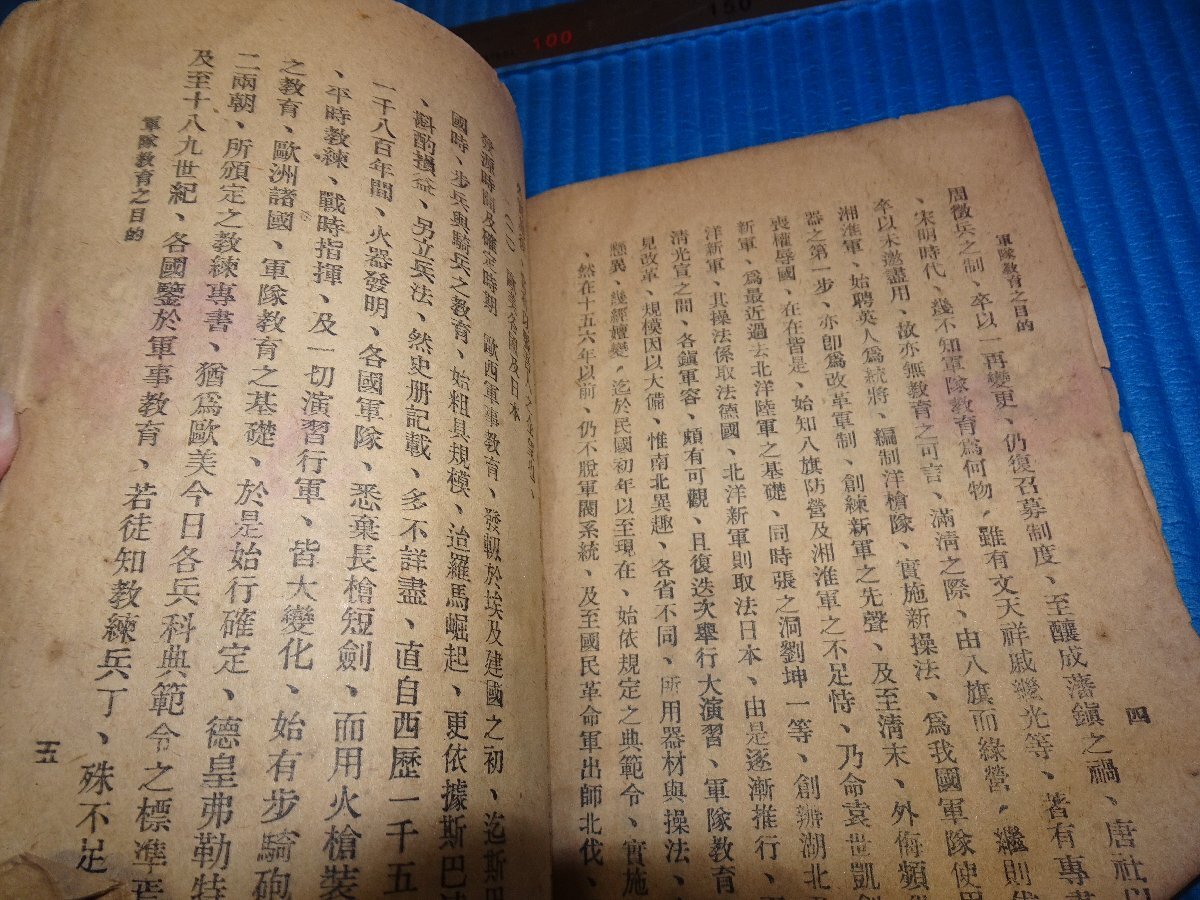 軍隊敎育之目的
四
周徵兵之制、卒以一再變更、仍復召募制度、至釀成藩鎭之禍、唐社
、宋明時代、幾不知軍隊敎育爲何物、雖有文天祥戚繼光等、著有專書
卒以未邀盡用、故亦無敎育之可言、滿淸之際、由八旗而綠營、繼則
湘淮軍、始聘英人爲統將、編制洋槍隊、實施新操法、爲我國軍隊使用
器之第一步、亦卽爲改革軍制、創練新軍之先聲、及至淸末、外侮頻
喪權辱國、在在皆是、始知八旗防營及湘淮軍之不足恃、乃命袁世凱創
新軍、爲最近過去北洋陸軍之基礎、同時張之洞劉坤一等、創辦湖北
洋新軍、其操法係取法德國、北洋新軍則取法日本、由是逐漸推行、
淸光宣之間、各鎭軍容、頗有可觀、且復迭次舉行大演習、軍隊敎育
見改革、規模因以大備、惟南北異趣、各省不同、所用器材與操法、
懸異、幾經嬗變、迄於民國初年以至現在、始依規定之典範令、實施
、然在十五六年以前、仍不脫軍閥系統、及至國民革命軍出師北伐、
各國及日本
發源時間及確定時期 歐西軍事敎育、發軔於埃及建國之初、迄斯巴
國時、步兵與騎兵之敎育、始粗具規模、迨羅馬崛起、更依據斯巴達
、斟酌損益、另立兵法、然史册記載、多不詳盡、直自西歷一千五
一千八百年間、火器發明、各國軍隊、悉棄長槍短劍、而用火槍裝
、平時敎練、戰時指揮、及一切演習行軍、皆大變化、始有步騎砲
之敎育、歐洲諸國、軍隊敎育之基礎、於是始行確定、德皇弗勒特
二兩朝、所頒定之敎練專書、猶爲歐美今日各兵科典範令之標準
及至十八九世紀、各國鑒於軍事敎育、若徒知敎練兵丁、殊不足
軍隊敎育之目的
五
100
150